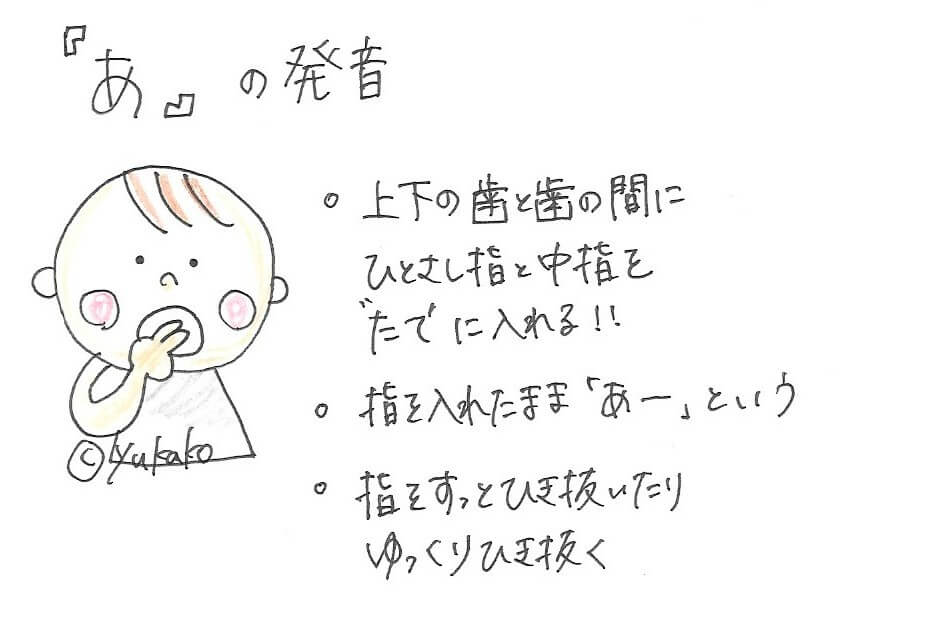 『あ』の発音
○ 上下の歯と歯の間に
ひとさし指と中指を
"たて"に入れる!!
○ 指を入れたまま「あー」という
○ 指をすっとひき抜いたり
ゆっくりひき抜く
©yukako